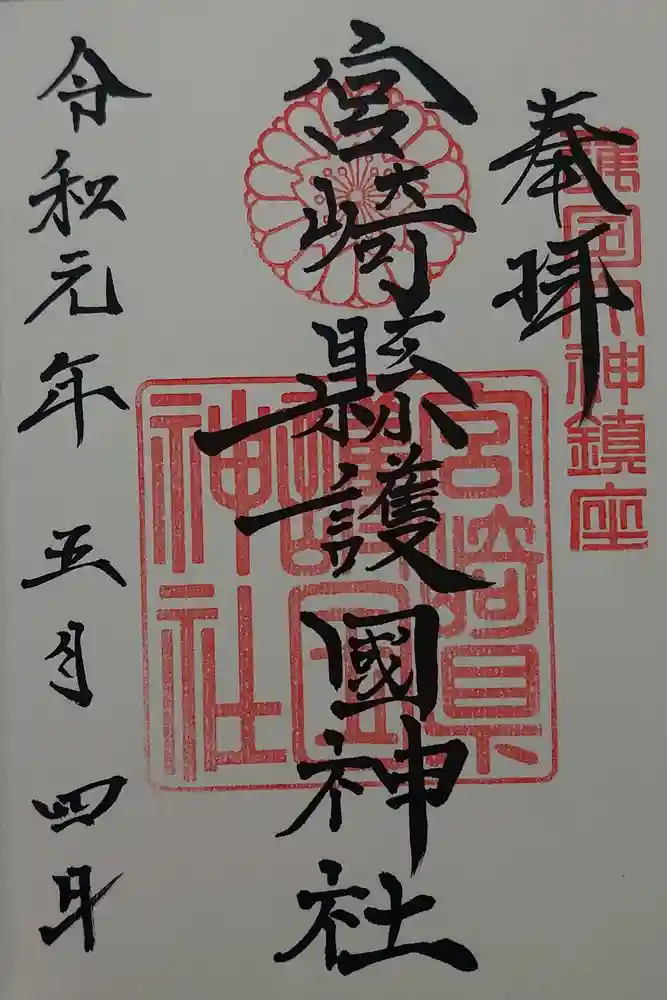 奉拝
護国大神鎮座
宮崎縣護國神社
宮崎県
護国
神社
令和元年 五月 四日